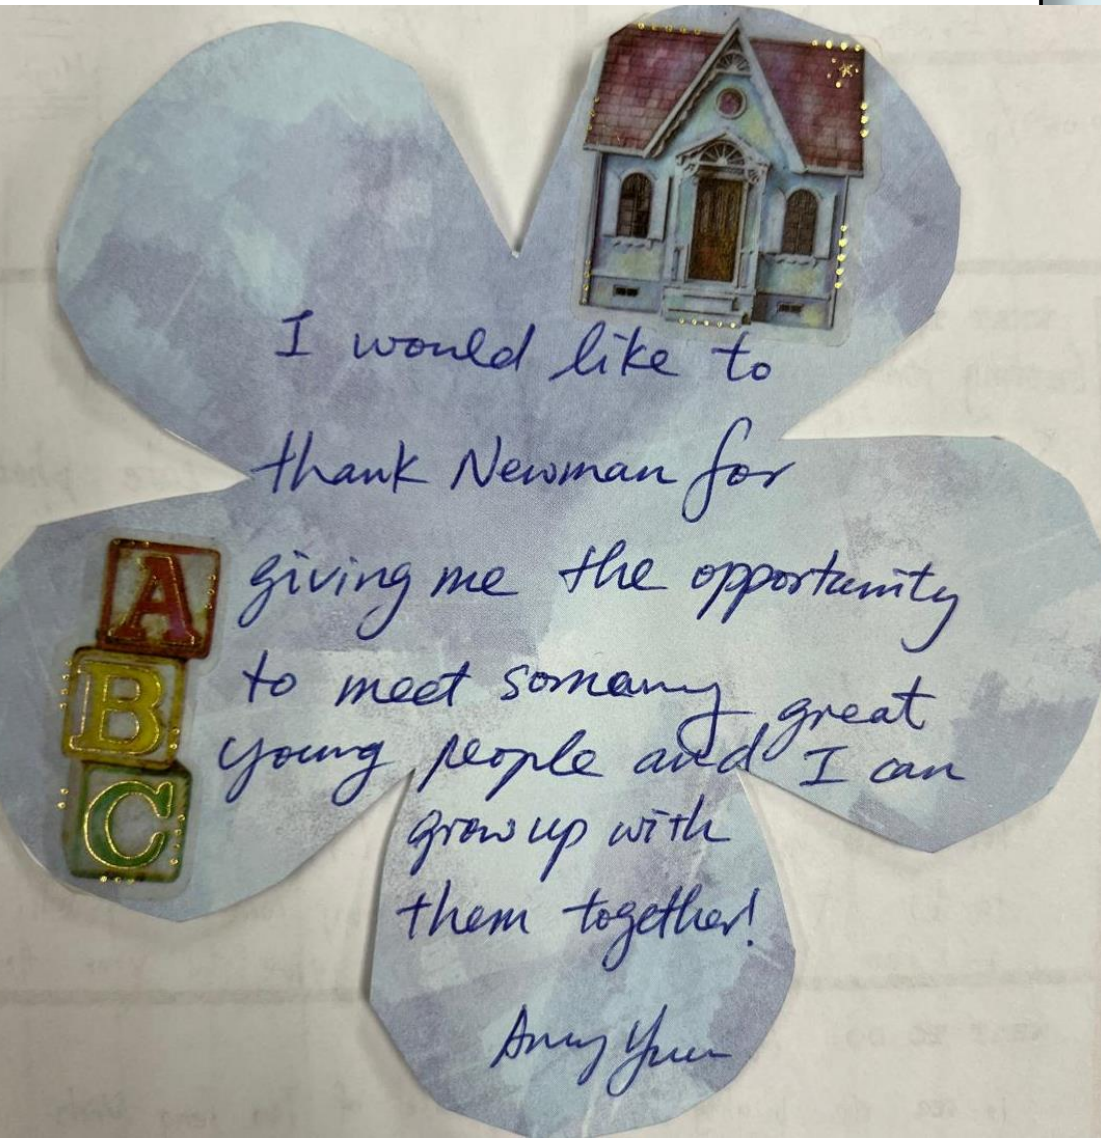 I would like to
thank Newman for
giving me the opportunity
to meet somany great
young people and I can
grow up with
them together!
Amy
A
B
C